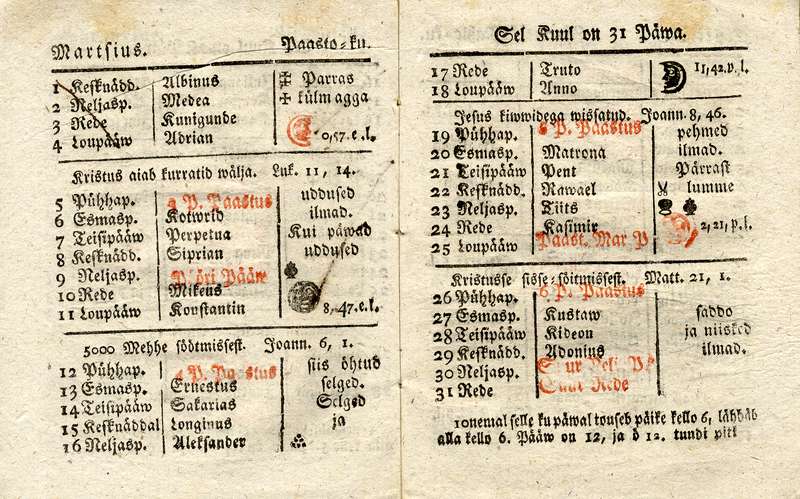 Martsius. Paasto-ku.
1 Kesknädd. Albinus Parras
2 Neljasp. Medea külm agga
3 Rede Kunigunde
4 Loupääw Adrian 0,57. e. l.
Kristus aiab kurratid wälja. Luk. 11, 14.
5 Pühhap. 3 P. Paastus uddused
6 Esmasp. Kotwrid ilmad.
7 Teisipääw Perpetua Kui päwad
8 Kesknädd. Siprian uddused
9 Neljasp. Pööri Pääw
10 Rede Mikeus
11 Loupääw Konstantin 8,47. e. l.
5000 Mehhe söötmissest. Joann. 6, 1.
12 Pühhap. 4 P. Paastus siis öhtud
13 Esmasp. Ernestus selged.
14 Teisipääw Sakarias Selged
15 Kesknäddal Longinus ja
16 Neljasp. Aleksander
Sel Kuul on 31 Päwa.
17 Rede Truto 11,42. p. l.
18 Loupääw Anno
Jesus kiwwidega wissatud. Joann. 8, 46.
19 Pühhap. P. Paastus pehmed
20 Esmasp. Matrona ilmad.
21 Teisipääw Pent Pärrast
22 Kesknädd. Rawael lumme
23 Neljasp. Tiits
24 Rede Kasimir 2,21, p. l.
25 Loupääw Paast. Mar P
Kristusse sisse-söitmissest. Matt. 21, 1.
26 Pühhap. 6 P. Paastus
27 Esmasp. Kustaw saddo
28 Teisipääw Kideon ja niisked
29 Kesknädd. Adonius ilmad.
30 Neljasp.
31 Rede Suur Rede
10nemal selle ku päwal touseb päike kello 6, lähhäb
alla kello 6. Pääw on 12, ja ö 12. tundi pitk